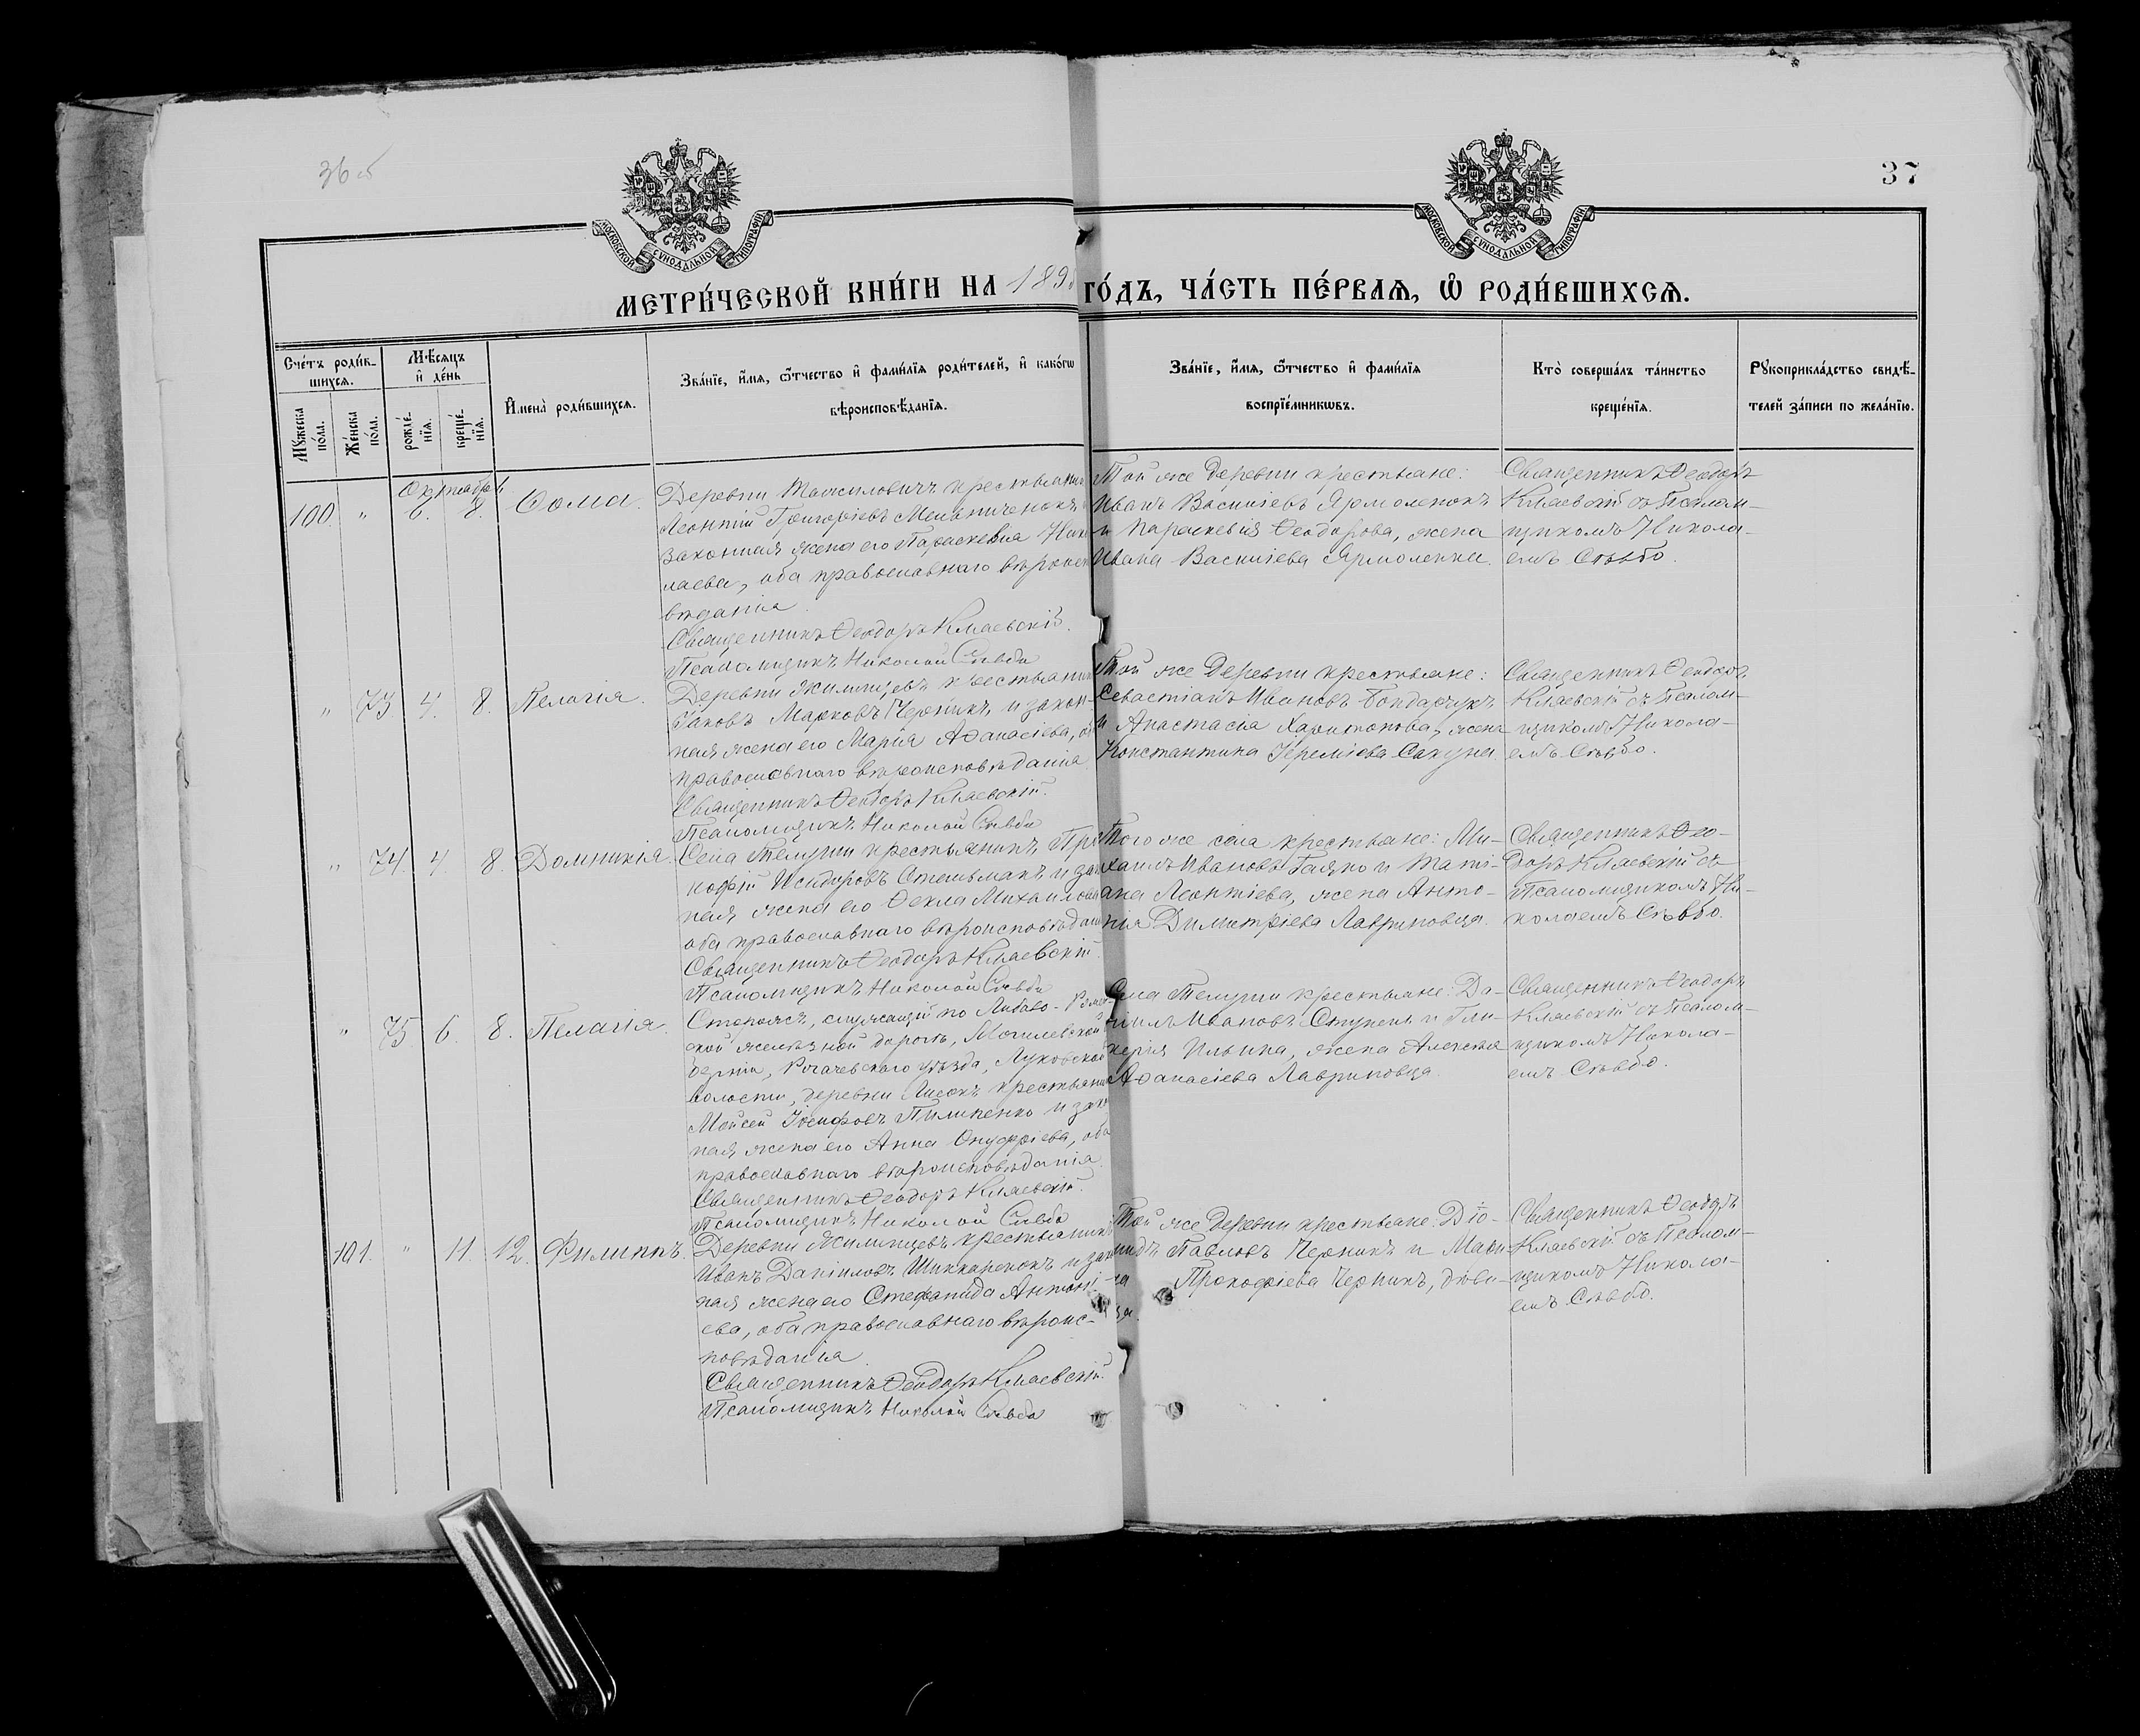 36 об
37
МОСКОВСКОЙ СѴНОДАЛЬНОЙ ТИПОГРАФІИ
МОСКОВСКОЙ СѴНОДАЛЬНОЙ ТИПОГРАФІИ
МЕТРИ́ЧЕСКОЙ КНИ́ГИ НА 189
ГО́ДЪ, ЧА́СТЬ ПЕ́РВАѦ, Ѡ҆ РОДИ́ВШИХСѦ.
Сче́тъ роди́в-
шихсѧ.
Мꙋ́жеска
по́ла.
Же́нска
по́ла.
Мѣ́сѧцъ
и҆ де́нь
рожде́-
нїѧ.
креще́-
нїѧ.
И҆мена̀ роди́вшихсѧ.
Зва́нїе, и҆́мѧ, ѻ҆́тчество и҆ фами́лїѧ роди́телей, и҆ како́гѡ
вѣроисповѣ́данїѧ.
Зва́нїе, и҆́мѧ, ѻ҆́тчество и҆ фами́лїѧ
воспрїе́мникѡвъ.
Кто̀ соверша́лъ та́инство
креще́нїѧ.
Рꙋкоприкла́дство свидѣ́-
телей за́писи по жела́нїю.
Октября
100. " 6. 8. Ѳома.
Деревни крестьянин
Леонтій Григоріевъ Мельниченокъ
законная жена его Параскевія Нико
лаева, оба православнаго вѣроиспо
вѣданія.
Священникъ Ѳеодоръ Кляевскій.
Псаломщикъ Николай Сѣвбо
Той же деревни крестьяне:
Иванъ Василіевъ Ярмоленокъ
и Параскевія Ѳеодорова, жена
Ивана Василіева Ярмоленка.
Священникъ Ѳеодоръ
Кляевскій съ Псалом-
щикомъ Никола-
емъ Сѣвбо.
" 73. 4. 8. Пелагія.
Деревни Жилинцевъ крестьянин
Іаковъ Марковъ Черникъ и закон-
ная жена его Марія Аѳанасіева, об
православнаго вѣроисповѣданія.
Священникъ Ѳеодоръ Кляевскій.
Псаломщикъ Николай Сѣвбо
Той же деревни крестьяне:
Севастіанъ Ивановъ Бондарчукъ
и Анастасіа Харитонова, жена
Константина Іереміева Сакуна.
Священникъ Ѳеодоръ
Кляевскій съ Псалом-
щикомъ Никола-
емъ Сѣвбо.
" 74. 4. 8. Домникія.
Села Телуши крестьянинъ Про
кофій Исидоровъ Стельмахъ и зак
ная жена его Ѳекла Михаилова
оба православнаго вѣроисповѣдан
Священникъ Ѳеодоръ Кляевскій.
Псаломщикъ Николай Сѣвбо
Того же села крестьяне: Ми-
хаилъ Ивановъ и Таті-
ана Леонтіева, жена Анто-
нія Димитріева Лавриновца.
Священникъ Ѳео-
доръ Кляевскій съ
Псаломщикомъ Ни-
колаемъ Сѣвбо.
" 75. 6. 8. Пелагія.
Сторожъ, служащій по Либаво-Ромен-
ской желѣзной дорогѣ, Могилевской
берніи, Рогачевскаго уѣзда, Луковской
волости, деревни Лисокъ крестьянин
Моисей Іосифовъ Пилипенко и зако
ная жена его Анна Онуфріева, оба
православнаго вѣроисповѣданія.
Священникъ Ѳеодоръ Кляевскій.
Псаломщикъ Николай Сѣвбо
Села Телуши крестьяне: Да-
ніилъ Ивановъ Ступень и Гли-
керія Ильина, жена Алексѣя
Аѳанасіева Лавриновца.
Священникъ Ѳеодоръ
Кляевскій съ Псалом-
щикомъ Никола-
емъ Сѣвбо.
101. " 11. 12. Филиппъ.
Деревни Жилинцевъ крестьянинъ
Иванъ Даніиловъ Шинкаренокъ и зак
ная жена его Стефанида Антоні-
ева, оба православнаго вѣроис-
повѣданія.
Священникъ Ѳеодоръ Кляевскій.
Псаломщикъ Николай Сѣвбо
Той же деревни крестьяне: Діо-
мидъ Павловъ Черникъ и Мари
я Прокофіева Черникъ, дѣви-
ца.
Священникъ Ѳеодоръ
Кляевскій съ Псалом-
щикомъ Никола-
емъ Сѣвбо.